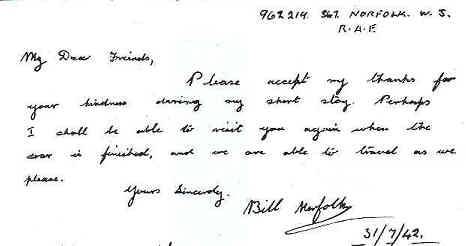 962214. Sgt. NORFOLK. W. S.
R.A.F
My Dear Freinds,
Please accept my thanks for
your kindness during my short stay. Perhaps
I shall be able to visit you again when the
war is finished, and we are able to travel as we
please.
Yours Sincerely.
Bill Norfolk
31/7/42.